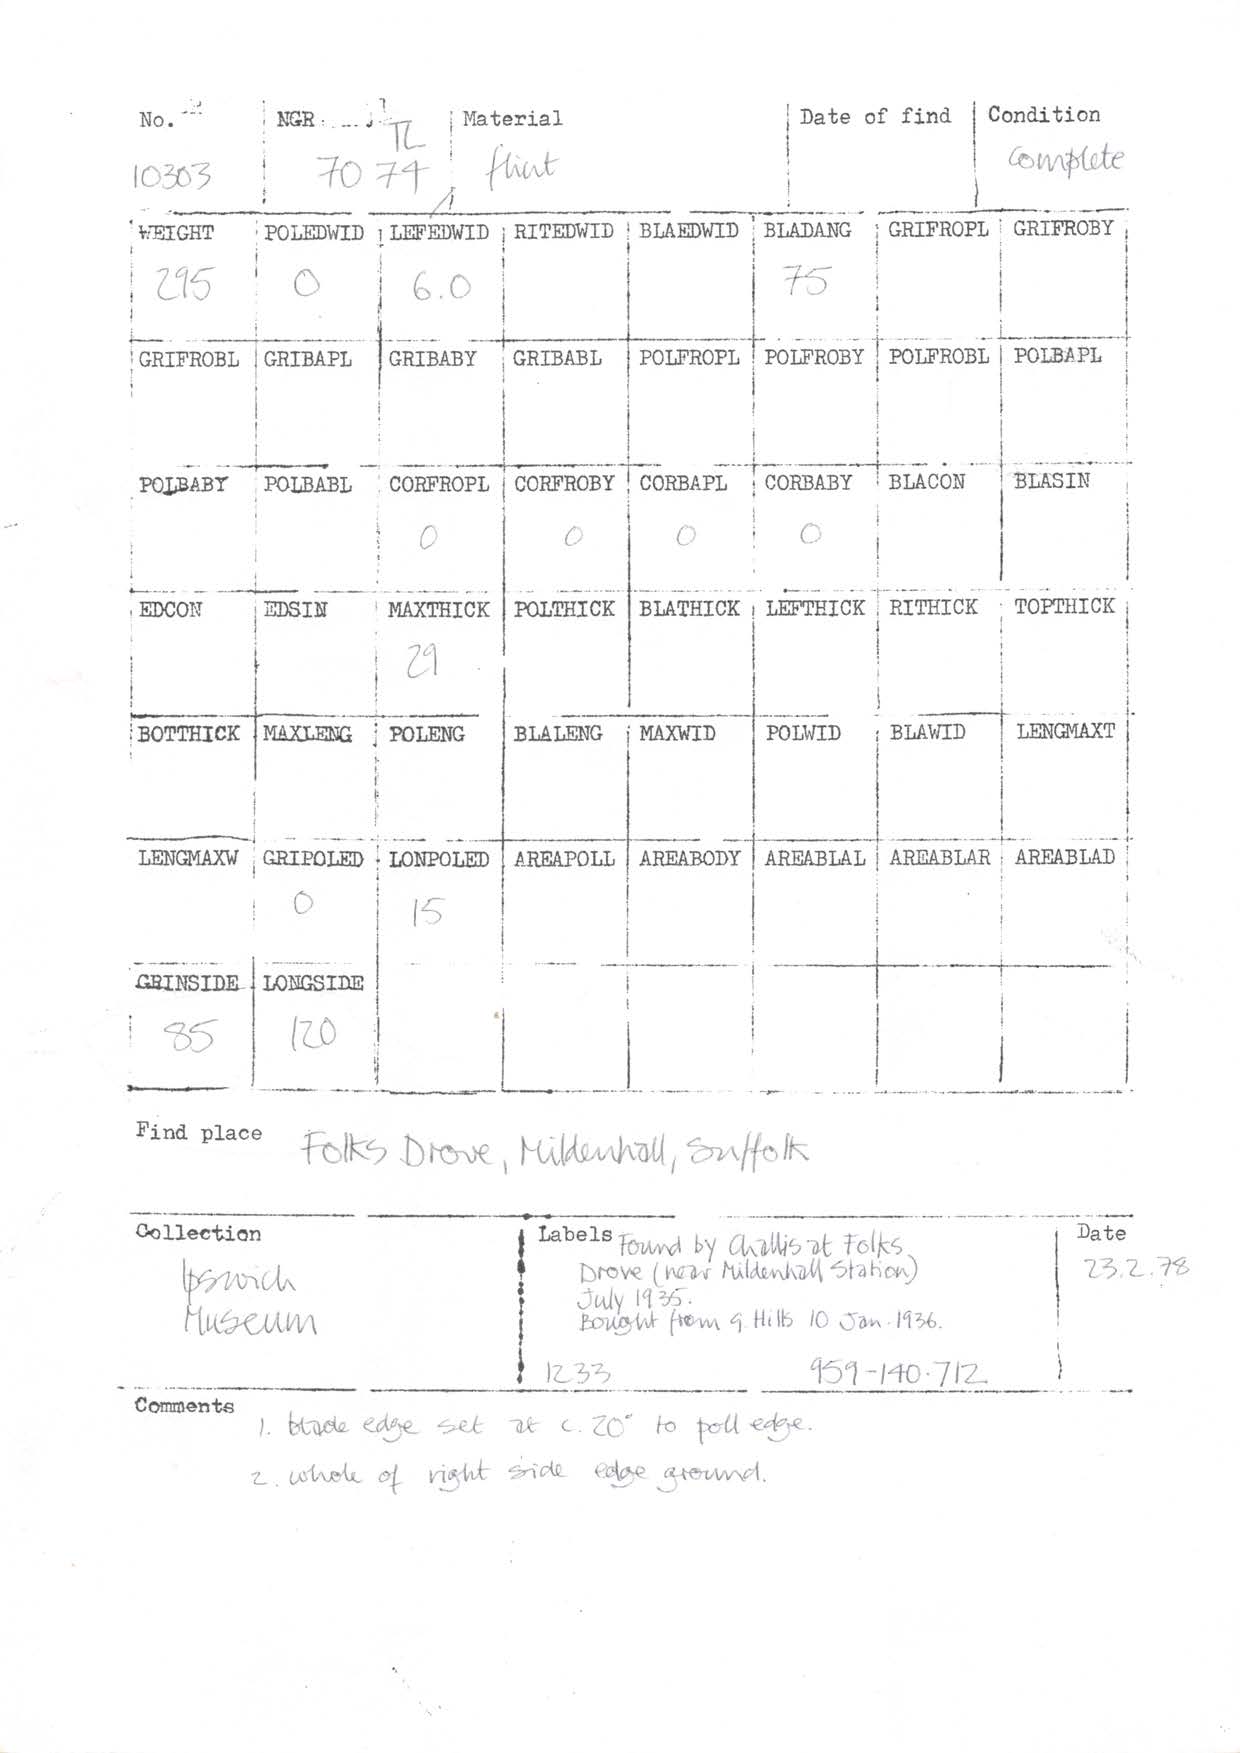 No. NGR Material Date of find Condition
TL
10303 70 74 flint complete
WEIGHT POLEDWID LEFEDWID RITEDWID BLAEDWID BLADANG GRIFROPL GRIFROBY
295 0 6.0 75
GRIFROBL GRIBAPL GRIBABY GRIBABL POLFROPL POLFROBY POLFROBL POLBAPL
POLBABY POLBABL CORFROPL CORFROBY CORBAPL CORBABY BLACON BLASIN
0 0 0 0
EDCON EDSIN MAXTHICK POLTHICK BLATHICK LEFTHICK RITHICK TOPTHICK
29
BOTTHICK MAXLENG POLENG BLALENG MAXWID POLWID BLAWID LENGMAXT
LENGMAXW GRIPOLED LONPOLED AREAPOLL AREABODY AREABLAL AREABLAR AREABLAD
0 15
GRINSIDE LONGSIDE
85 120
Find place Folks Drove, Mildenhall, Suffolk
Collection
Ipswich
Museum
Labels Found by Challis at Folks
Drove (near Mildenhall Station)
July 1935.
Bought from G. Hills 10 Jan. 1936.
1233 959-140.712
Date
23.2.78
Comments
1. blade edge set at c. 20° to poll edge.
2. whole of right side edge ground.